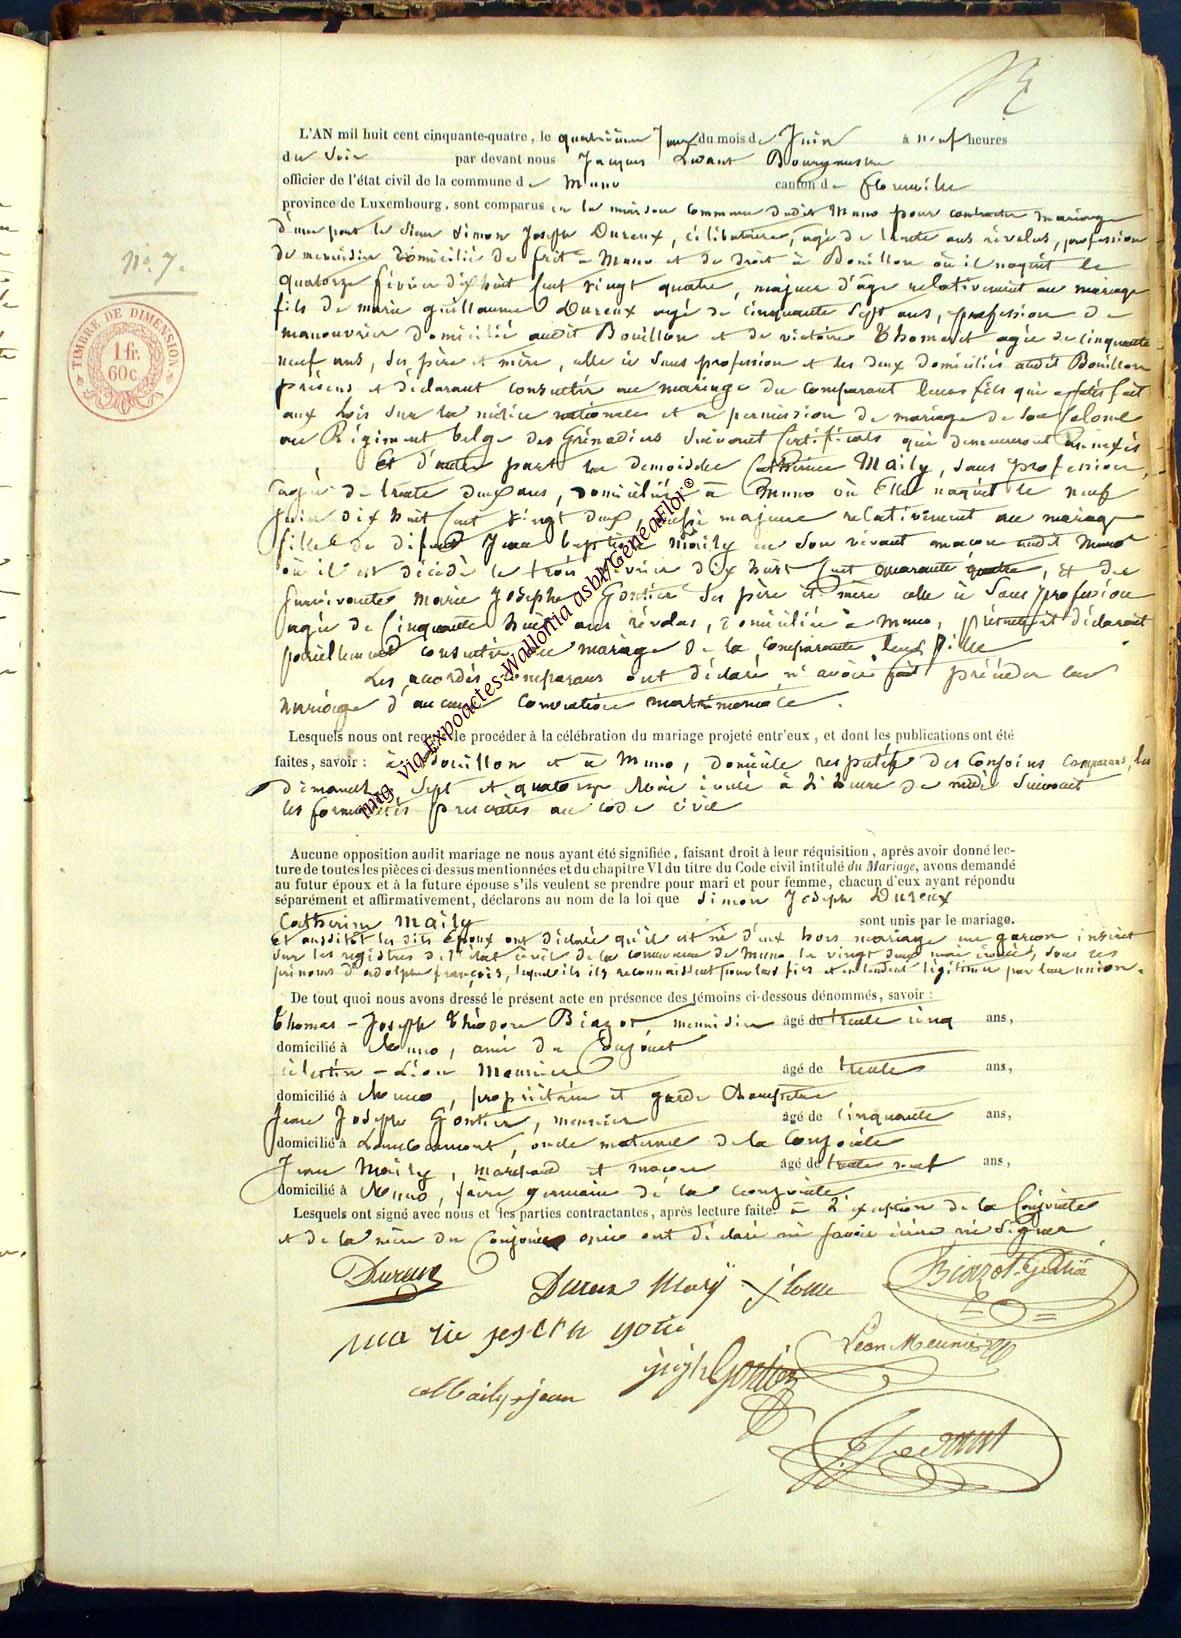 N.° 7.
TIMBRE DE DIMENSION
1 fr.
60 c.
L'AN mil huit cent cinquante-quatre, le quatrième jour du mois de Juin à neuf heures
du Soir par devant nous Jacques Bourgmestre
officier de l'état civil de la commune de Muno canton de Florenville
province de Luxembourg, sont comparus en la maison commune dudit Muno pour contracter mariage
d'une part le sieur Simon Joseph Dureux, célibataire, agé de trente ans révolus, profession
de menuisier domicilié de fait à Muno et de droit à Bouillon où il naquit le
quatorze février dix huit cent vingt quatre, majeur d'âge relativement au mariage
fils de marie guillaume Dureux agé de cinquante sept ans, profession de
manouvrier domicilié audit Bouillon et de victoire Thomas et agée de cinquante
neuf ans, ses père et mère, elle ici sans profession et les deux domiciliés audit Bouillon
présens et déclarant consentir au mariage du comparant leurs fils qui a satisfait
aux lois sur la milice nationale et a permission de mariage de son Colonel
au Régiment belge des Grénadiers suivant certificats qui demeureront annexés
Et d'autre part la demoiselle Catherine Maily, sans profession,
agée de trente deux ans, domiciliée à Muno où Elle naquit le neuf
Juin dix huit cent vingt deux, aussi majeure relativement au mariage
fille de défunt Jean baptiste Maily en son vivant maçon audit Muno
où il est décédé le trois février dix huit cent quarante quatre, et de
survivante Marie Josephe Gontier ses père et mère elle ici sans profession
agée de cinquante huit ans révolus, domiciliée à Muno, présente et déclarant
pareillement consentir au mariage de la comparante leur fille
Les accordés comparans ont déclaré n'avoir fait précéder leur
mariage d'aucune convention matrimoniale.
Lesquels nous ont requis de procéder à la célébration du mariage projeté entr'eux, et dont les publications ont été
faites, savoir: à Bouillon et à Muno, domicile respectif des Conjoins comparans, les
dimanches sept et quatorze Mai écoulé à l'heure de midi suivant
les formalités prescrites au code civil
Aucune opposition audit mariage ne nous ayant été signifiée, faisant droit à leur réquisition, après avoir donné lec-
ture de toutes les pièces ci-dessus mentionnées et du chapitre VI du titre du Code civil intitulé du Mariage, avons demandé
au futur époux et à la future épouse s'ils veulent se prendre pour mari et pour femme, chacun d'eux ayant répondu
séparément et affirmativement, déclarons au nom de la loi que Simon Joseph Dureux
Catherine Maily sont unis par le mariage.
Et aussitôt les dits Epoux ont déclaré qu'il est né d'eux hors mariage un garçon inscrit
sur les registres de l'état civil de la commune de Muno le vingt deux mai écoulé, sous les
prénoms d'adolphe françois, lequel ils reconnaissent pour leur fils et entendent légitimer par leur union.
De tout quoi nous avons dressé le présent acte en présence des témoins ci-dessous dénommés, savoir:
Thomas-Joseph Théodore Biazot, menuisier âgé de trente cinq ans,
domicilié à Muno, ami du Conjoint
célestin-Léon Meunier âgé de trente ans,
domicilié à Muno, propriétaire et garde champêtre
Jean Joseph Gontier, menuisier âgé de cinquante ans,
domicilié à oncle maternel de la Conjointe
Jean Maily, marchand et maçon âgé de trente neuf ans,
domicilié à Muno, frère germain de la conjointe
Lesquels ont signé avec nous et les parties contractantes, après lecture faite. à l'exception de la Conjointe
et de la mère du Conjoint qui ont déclaré ne savoir écrire ni signer
Dureux
Dureux
Biazot
marie joseph gotié
Léon Meunier
joseph Gontier
Maily jean
img via Expoactes-Wallonia asbl/GénéaFlor®